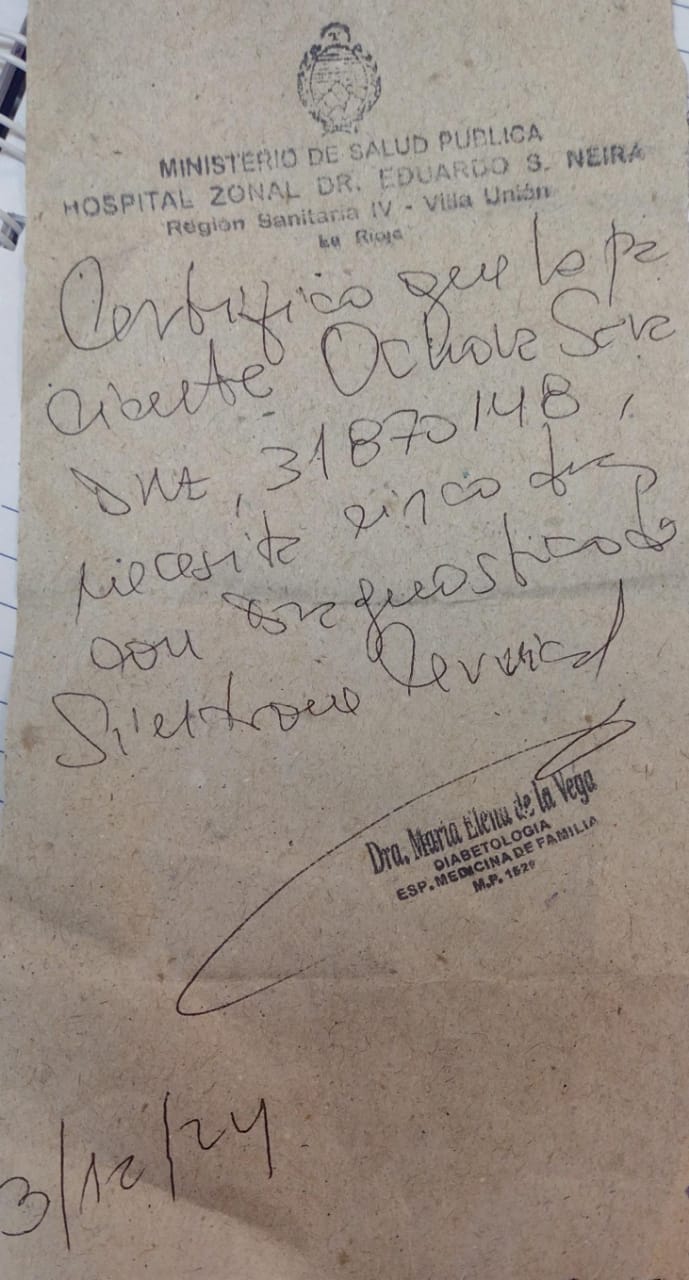 MINISTERIO DE SALUD PUBLICA
HOSPITAL ZONAL DR. EDUARDO S. NEIRA
Región Sanitaria IV - Villa Unión
La Rioja
Certifico que la pa
ciente Ochova Sara
DNI, 31870148,
necesita cinco días
con diagnosticado
Síndrome Cervical
Dra. María Elena de la Vega
DIABETOLOGIA
ESP. MEDICINA DE FAMILIA
M.P. 152
3/12/24